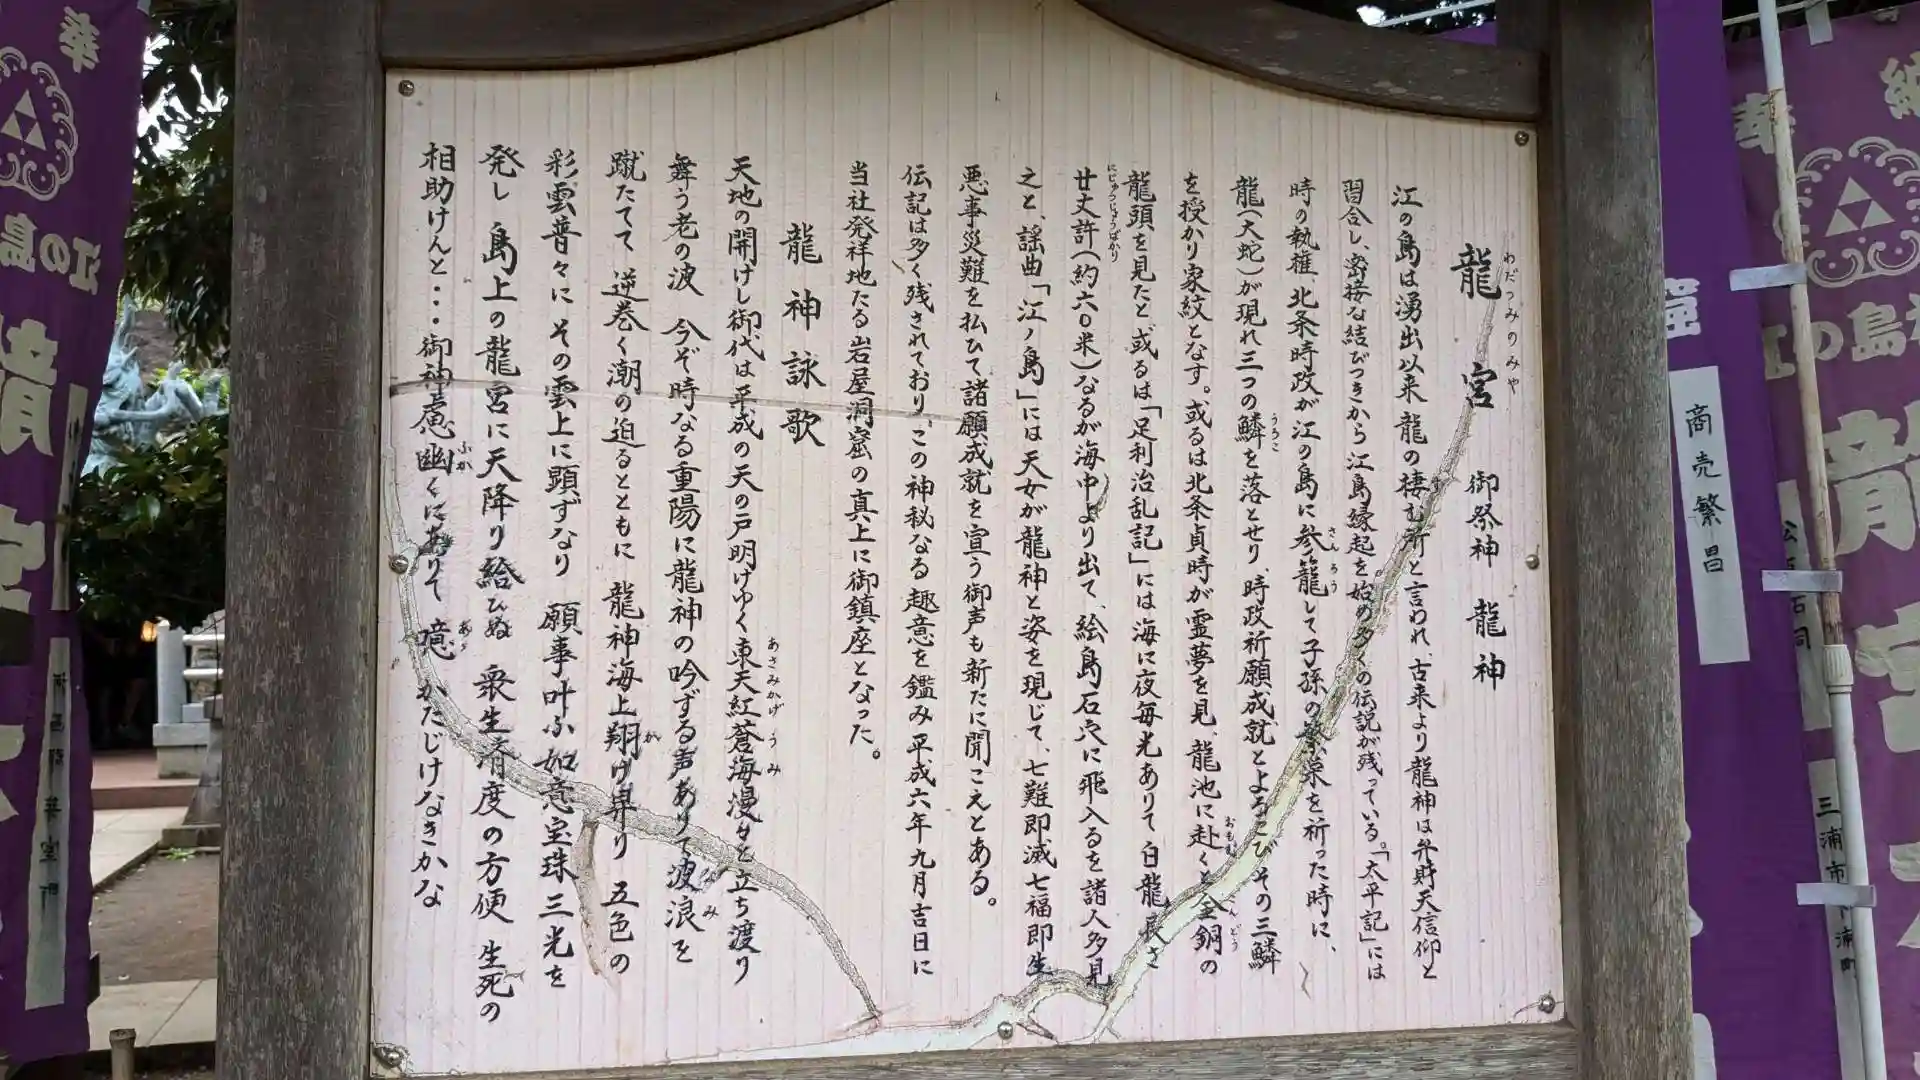 龍宮 御祭神 龍神
わだつみのみや
江の島は湧出以来龍の棲む所と言われ、古来より龍神は弁財天信仰と
習合し、密接な結びつきから江島縁起を始め多くの伝説が残っている。「太平記」には
時の執権、北条時政が江の島に参籠して子孫の繁栄を祈った時に、
さんろう
龍(大蛇)が現れ三つの鱗を落とせり、時政祈願成就とよろこびその三鱗
うろこ
を授かり家紋となす。或るは北条貞時が霊夢を見、龍池に赴くと金銅の
おもむ
こんどう
龍頭を見たと、或るは「足利治乱記」には海に夜毎光ありて白龍長さ
廿丈許(約六〇米)なるが海中より出て、絵島石穴に飛入るを諸人多見
にじゅうじょうばかり
之と、謡曲「江ノ島」には天女が龍神と姿を現じて、七難即滅七福即生
悪事災難を払ひて、諸願成就を宣う御声も新たに聞こえとある。
伝記は多く残されており、この神秘なる趣意を鑑み平成六年九月吉日に
当社発祥地たる岩屋洞窟の真上に御鎮座となった。
龍神詠歌
天地の開けし御代は平成の天の戸明けゆく東天紅蒼海漫々と立ち渡り
あさみかげうみ
舞う老の波 今ぞ時なる重陽に龍神の吟ずる声ありて波浪を
なみ
蹴たてて 逆巻く潮の迫るとともに 龍神海上翔け昇り 五色の
か
彩雲普々に その雲上に顕ずなり 願事叶ふ如意宝珠三光を
発し 島上の龍宮に天降り給ひぬ 衆生済度の方便 生死の
相助けんと・・・御神慮幽くにありて 噫 かたじけなきかな
ふか
あゝ
奉
江の島
龍宮
商売繁昌
奉
納
江の島
龍宮
三浦市